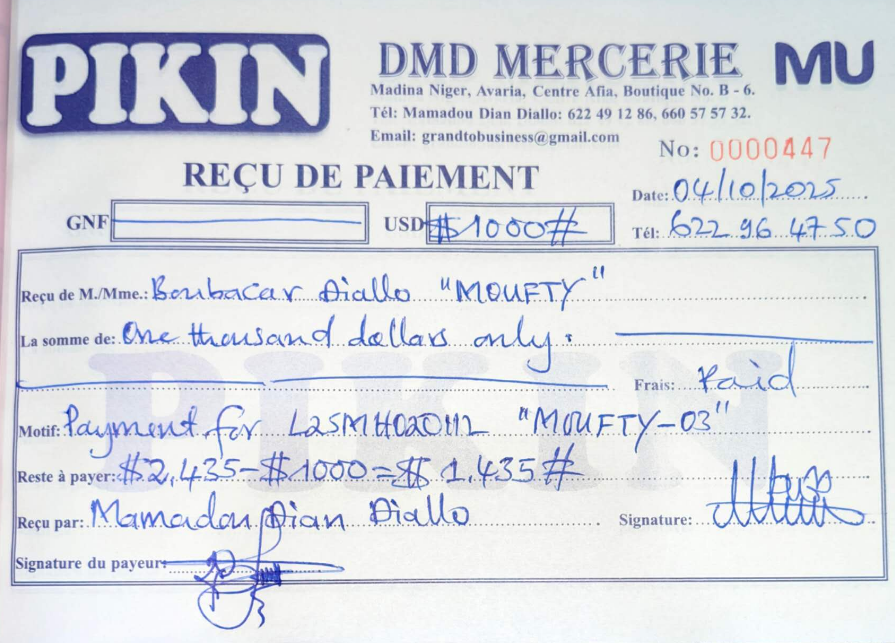 PIKIN
DMD MERCERIE MU
Madina Niger, Avaria, Centre Afia, Boutique No. B - 6.
Tél: Mamadou Dian Diallo: 622 49 12 86, 660 57 57 32.
Email: grandtobusiness@gmail.com
No: 0000447
REÇU DE PAIEMENT
Date: 04/10/2025
GNF USD $1000#
Tél: 622 96 47 50
Reçu de M./Mme.: Boubacar Diallo "MOUFTY"
La somme de: One thousand dollars only:
Frais: Paid
Motif: Payment for "MOUFTY-03"
Reste à payer: $2,435-$1000=$ 1,435#
Reçu par: Mamadou Dian Diallo Signature:
Signature du payeur:
PIKIN